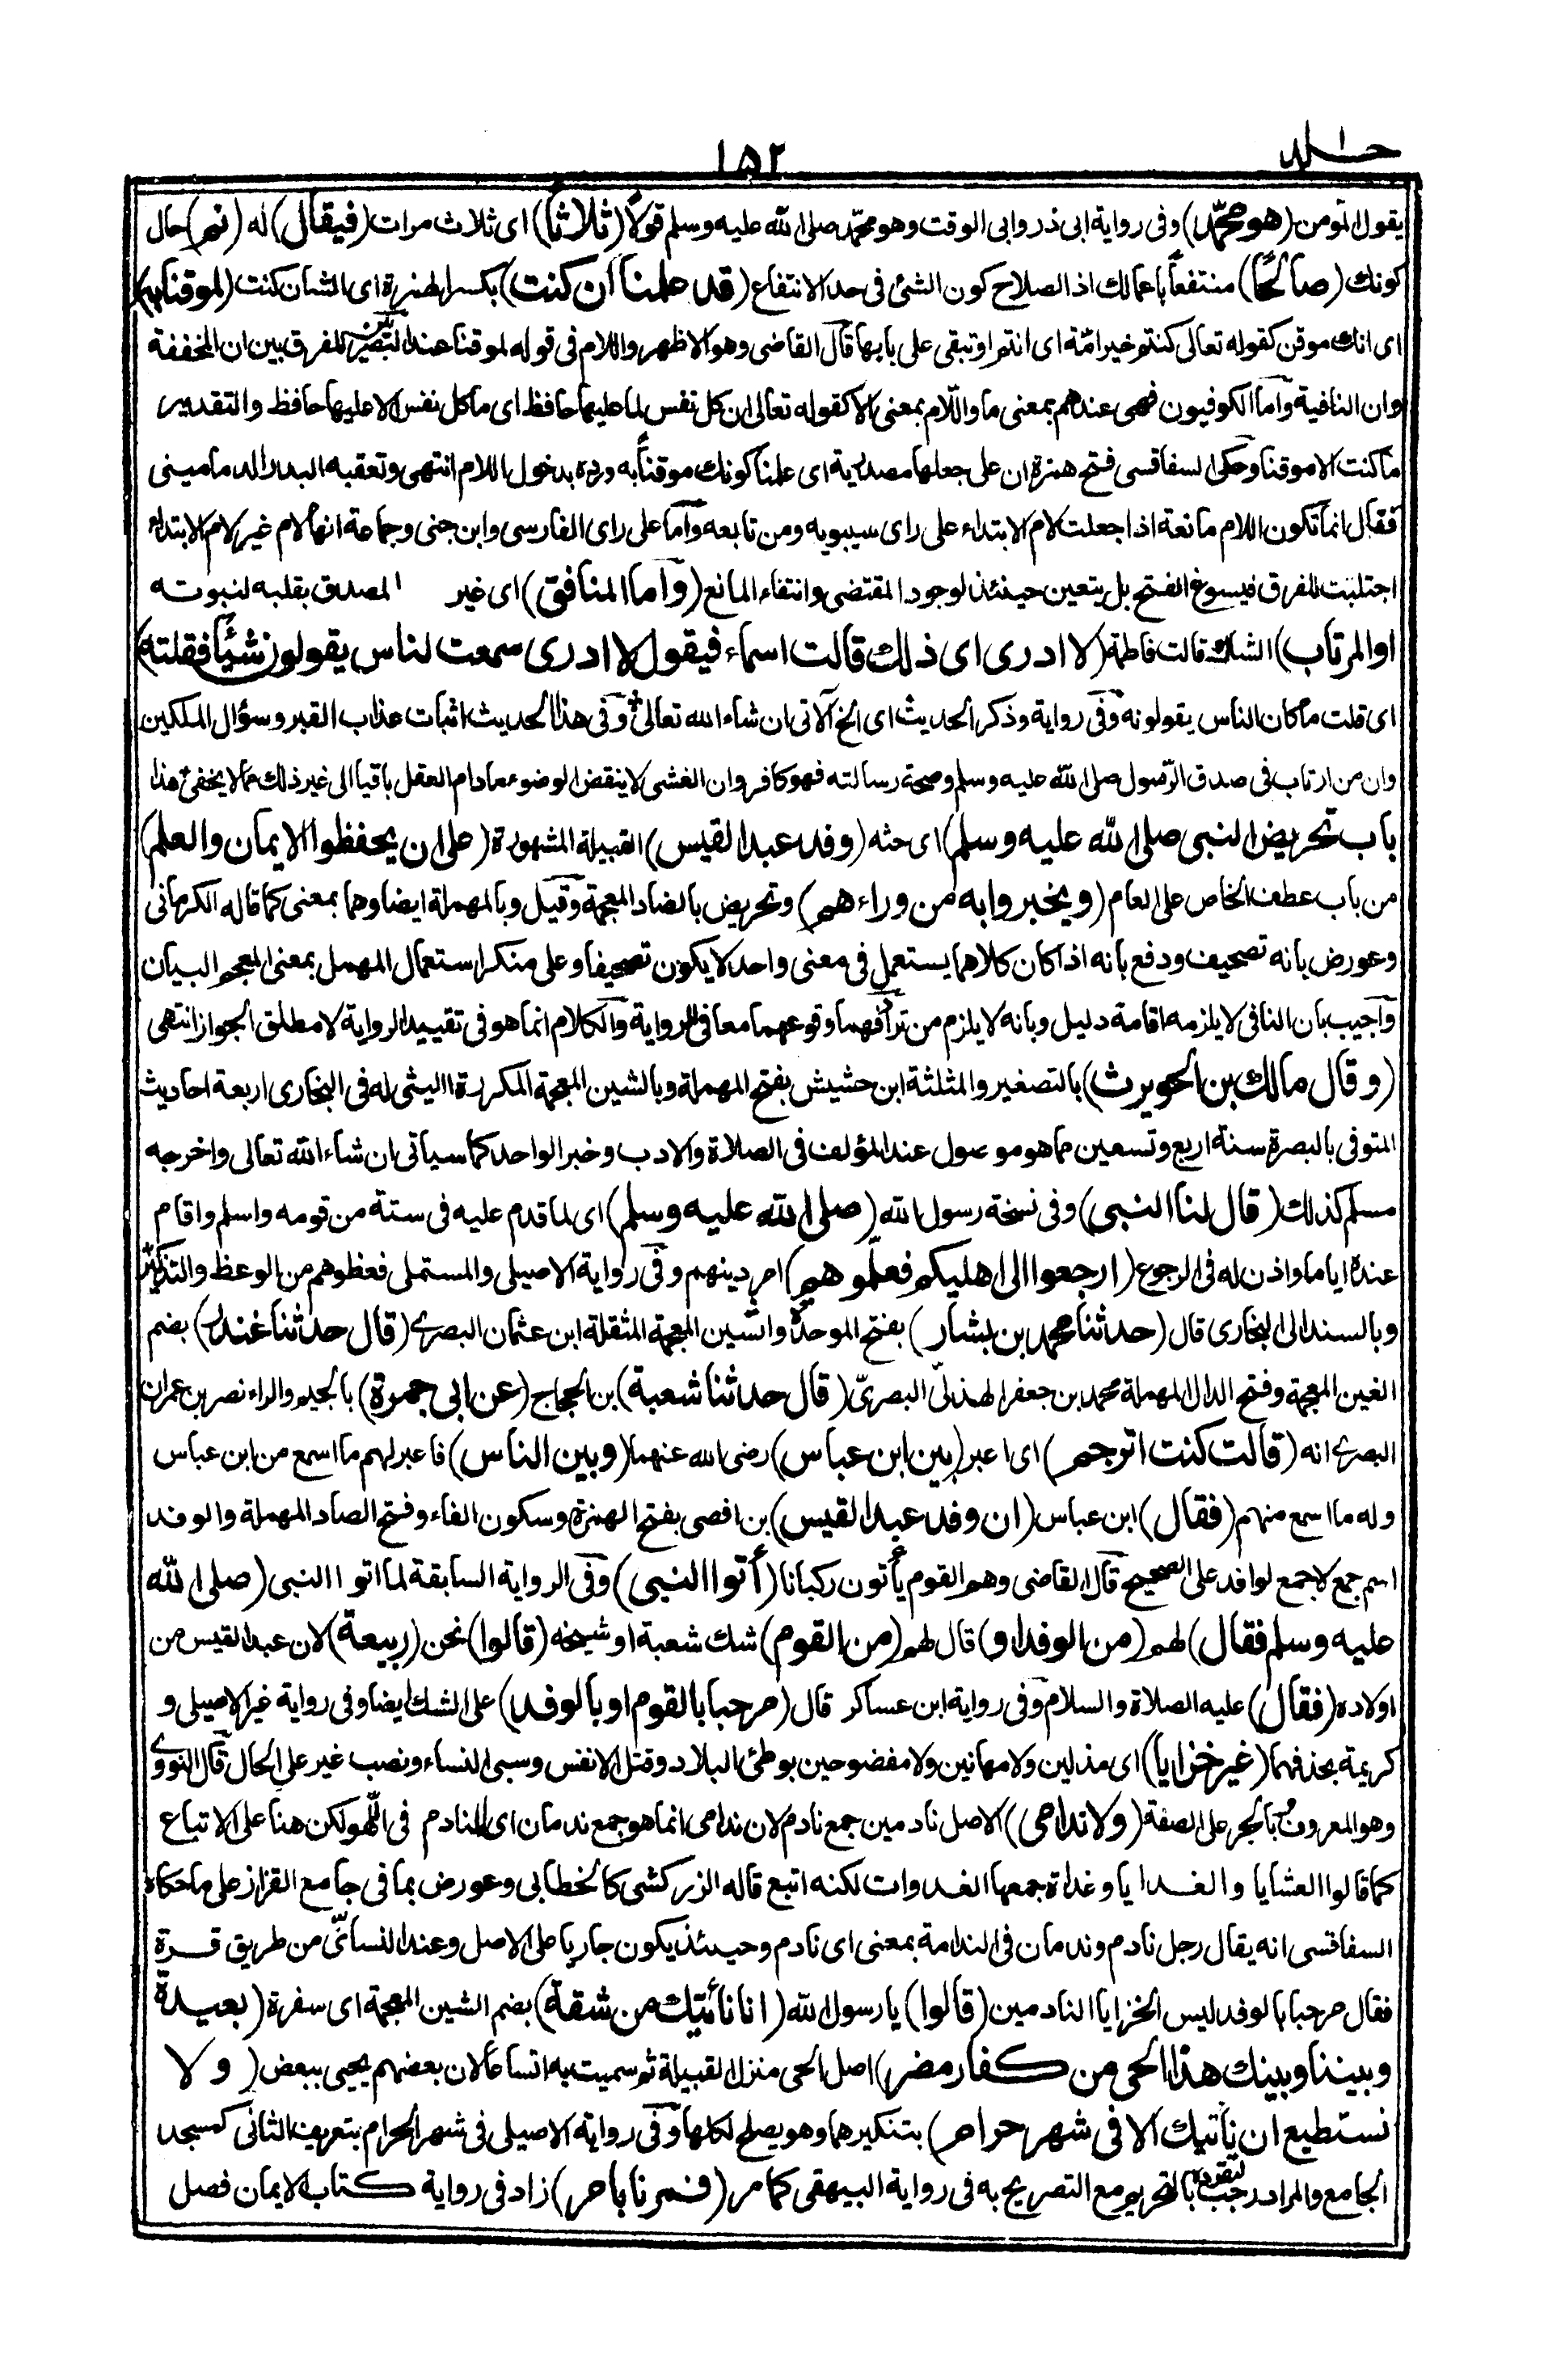 جلد ١
١٥٢
يقول المؤمن (هو محمّد) وفى رواية ابى ذر وابى الوقت وهو محمّد صلى الله عليه وسلم قولا (ثلاثاً) اى ثلاث مرات (فيقال) له (نم) حال
كونك (صالحًا) منتفعاً باعمالك اذ الصلاح كون الشئ فى حد الانتفاع (قد علمنا ان كنت) بكسر الهمزة اى الشان كنت (لموقنا به)
اى انك موقن كقوله تعالى كنتم خير امّة اى انتم اوتبقى على بابها قال القاضى وهو الاظهر واللام فى قوله لموقنا عند البصريين للفرق بين ان المخففة
وان النافية وأما الكوفيون فهى عندهم بمعنى ما واللّام بمعنى الا كقوله تعالى ان كل نفس لما عليها حافظ اى ما كل نفس الا عليها حافظ والتقدير
ما كنت الا موقنا وحكى السفاقسى فتح همزة ان على جعلها مصدرية اى علمنا كونك موقناً به ورده بدخول اللام انتهى وتعقبه البدر الدمامينى
فقال انما تكون اللام مانعة اذا جعلت لام الابتداء على راى سيبويه ومن تابعه وأما على راى الفارسى وابن جنى وجماعة انها لام غير لام الابتداء
اجتلبت للفرق فيسوغ الفتح بل يتعين حينئذ لوجود المقتضى وانتفاء المانع (واما المنافق) اى غير المصدق بقلبه لنبوته
(او المرتاب) الشاك قالت فاطمة (لا ادرى اى ذلك قالت اسماء فيقول لا ادرى سمعت الناس يقولون شيئاً فقلته)
اى قلت ما كان الناس يقولونه وفى رواية وذكر الحديث اى الخ الآتى ان شاء الله تعالى وفى هذا الحديث اثبات عذاب القبر وسؤال الملكين
وان من ارتاب فى صدق الرّسول صلى الله عليه وسلم وصحة رسالته فهو كافر وان الغشى لا ينقض الوضوء مادام العقل باقيا الى غير ذلك مما لا يخفى هذا
باب تحريض النبى صلى الله عليه وسلم) اى حثه (وفد عبد القيس) القبيلة المشهورة (على ان يحفظوا الايمان والعلم)
من باب عطف الخاص على العام (ويخبروا به من وراءهم) وتحريض بالضاد المعجمة وقيل وبالمهملة ايضا وهما بمعنى كما قاله الكرمانى
وعورض بانه تصحيف ودفع بانه اذا كان كلاهما يستعمل فى معنى واحد لا يكون تصحيفا وعلى منكر استعمال المهمل بمعنى المعجم البيان
وأجيب بان النافى لا يلزمه اقامة دليل وبانه لا يلزم من ترادفهما وقوعهما معا فى الرواية والكلام انما هو فى تقييد الرواية لا مطلق الجواز انتهى
(وقال مالك بن الحويرث) بالتصغير والمثلثة ابن حشيش بفتح المهملة وبالشين المعجمة المكررة الليثى له فى البخارى اربعة احاديث
المتوفى بالبصرة سنة اربع وتسعين مما هو موصول عند المؤلف فى الصلاة والادب وخبر الواحد كما سياتى ان شاء الله تعالى واخرجه
مسلم كذلك (قال لنا النبى) وفى نسخة رسول الله (صلى الله عليه وسلم) اى لما قدم عليه فى ستة من قومه واسلم واقام
عنده اياما واذن له فى الرجوع (ارجعوا الى اهليكم فعلّموهم) امر دينهم وفى رواية الاصيلى والمستملى فعظوهم من الوعظ والتذكير
وبالسند الى البخارى قال (حدثنا محمد بن بشار) بفتح الموحدة والشين المعجمة المثقلة ابن عثمان البصرى (قال حدثنا غندر) بضم
الغين المعجمة وفتح الدال المهملة محمد بن جعفر الهذلى البصرىّ (قال حدثنا شعبة) بن الحجاج (عن ابى جمرة) بالجيم والراء نصر بن عمران
البصرى انه (قال كنت اترجم) اى اعبر (بين ابن عباس) رضى الله عنهما (وبين الناس) فاعبر لهم ما اسمع من ابن عباس
وله ما اسمع منهم (فقال) ابن عباس (ان وفد عبد القيس) بن افصى بفتح الهمزة وسكون الفاء وفتح الصاد المهملة والوفد
اسم جمع لا جمع لوافد على الصحيح قال القاضى وهم القوم يأتون ركبانا (أتوا النبى) وفى الرواية السابقة لما اتوا النبى (صلى الله
عليه وسلم فقال) لهم (من الوفد او) قال لهم (من القوم) شك شعبة او شيخه (قالوا) نحن (ربيعة) لان عبد القيس من
اولاده (فقال) عليه الصلاة والسلام وفى رواية ابن عساكر قال (مرحبا بالقوم او بالوفد) على الشك ايضا وفى رواية غير الاصيلى و
كريمة بحذفهما (غير خزايا) اى مذلين ولا مهانين ولا مفضوحين بوطئ البلاد وقتل الانفس وسبى النساء ونصب غير على الحال قال النووى
وهو المعروف وبالجر على الصفة (ولا ندامى) الاصل نادمين جمع نادم لان ندامى انما هو جمع ندمان اى المنادم فى اللّهو لكن هنا على الاتباع
كما قالوا العشايا والغدايا وغداة جمعها الغدوات لكنه اتبع قاله الزركشى كالخطابى وعورض بما فى جامع القزاز على ما حكاه
السفاقسى انه يقال رجل نادم وندمان فى الندامة بمعنى اى نادم وحينئذ يكون جاريا على الاصل وعند النسائى من طريق قرة
فقال مرحبا بالوفد ليس الخزايا النادمين (قالوا) يا رسول الله (انا نأتيك من شقة) بضم الشين المعجمة اى سفرة (بعيدة
وبيننا وبينك هذا الحى من كفار مضر) اصل الحى منزل القبيلة ثم سميت به اتساعا لان بعضهم يحيى ببعض (ولا
نستطيع ان نأتيك الا فى شهر حرام) بتنكيرهما وهو يصلح لكلها وفى رواية الاصيلى فى شهر الحرام بتعريف الثانى كمسجد
الجامع والمراد رجب لتفرده بالتحريم مع التصريح به فى رواية البيهقى كما مر (فمرنا بامر) زاد فى رواية كتاب الايمان فصل